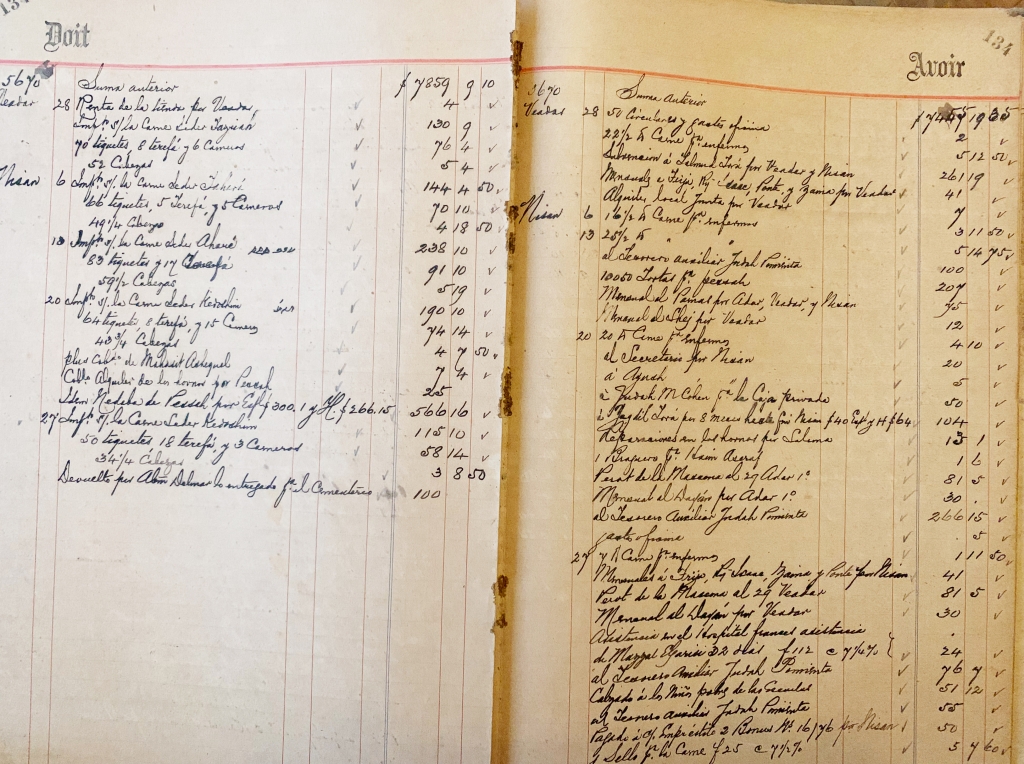 134
Doit
5670 Suma anterior $ 7859 9 10
Veadar 28 Renta de la tienda por Veadar 4
Impto s/ la Carne Seder 130 9
70 tiquetes, 8 terefá y 6 Carneros 76 4
52 Cabezas 5 4
Nisan 6 Impto s/ la Carne Seder 144 4 50
66 tiquetes, 5 Terefá, y 5 Carneros 70 10
49 1/4 Cabezas 4 18 50
13 Impto s/ la Carne Seder Aharé 238 10
83 tiquetes y 17 Terefá 91 10
59 1/2 Cabezas 5 19
20 Impto s/ la Carne Seder Kedoshim 190 10
64 tiquetes, 8 terefá, y 15 Carneros 74 14
43 3/4 Cabezas 4 7 50
plus Cobdo de 7 4
Cobdo Alquiler de los hornos por Pessah 25
Idem Nedaba de Pessah por Esp $ 300.1 y H. $ 266.15 566 16
27 Impto s/ la Carne Seder Kedoshim 115 10
50 tiquetes 18 terefá, y 3 Carneros 58 14
34 1/4 Cabezas 3 8 50
Devuelto por Abm Delmar lo entregado pa el Cementerio 100
134
Avoir
5670 Suma Anterior
Veadar 28 50 Circulares y gastos oficina 2
22 1/2 lb Carne pa enfermos 5 12 50
Subvencion á Talmud Torá por Veadar y Nisan 261 9
Mensuales a Frija, Rj Isaac, Ponte, y Zaina por Veadar 41
Alquiler local Junta por Veadar 7
Nisan 6 16 1/2 lb Carne pa enfermos 3 11 50
13 25 1/2 lb " " 5 14 75
al Tesorero auxiliar Judah Pimienta 100
10050 Tortas pa pessah 207
Mensual al por Adar, Veadar, y Nisan
Mensual al por Veadar 12
20 20 lb Carne pa enfermos 4 10
al Secretario por Nisan 20
a 5
á Judah M Cohen pa la Caja privada 50
por 8 meses hasta fin Nisan $ 40 Esp y H $ 64 104
Reparaciones en los hornos por Salama 13 1
1 Braguero pa 1 6
Perat de la Massena al 29 Adar 1o 81 5
Mensual al Dayán por Adar 1o 30
al Tesorero Auxiliar Judah Pimienta 266 15
gasto oficina 5
27 Carne pa enfermos 1 11 50
Mensuales á Frija, Rj Isaac, Zaina y Ponte por Nisan 41
Perat de la Massena al 29 Veadar 81 5
Mensual al Dayán por Veadar 30
Asistencia en el Hospital frances asistencia
de Mazzal 32 dias f 112 c 7 1/4 % 24
al Tesorero Auxiliar Judah Pimienta 76 7
Calzado á los Niños pobres de las Escuelas 51 12
al Tesorero auxiliar Judah Pimienta 55
Pagado á c/ Emprestito 2 Bonos Ns 16/76 por Nisan 50
y Sello pa la Carne f 25 c 7 1/2 %